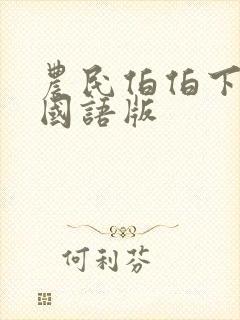 農民伯伯下
國語版
何利芬